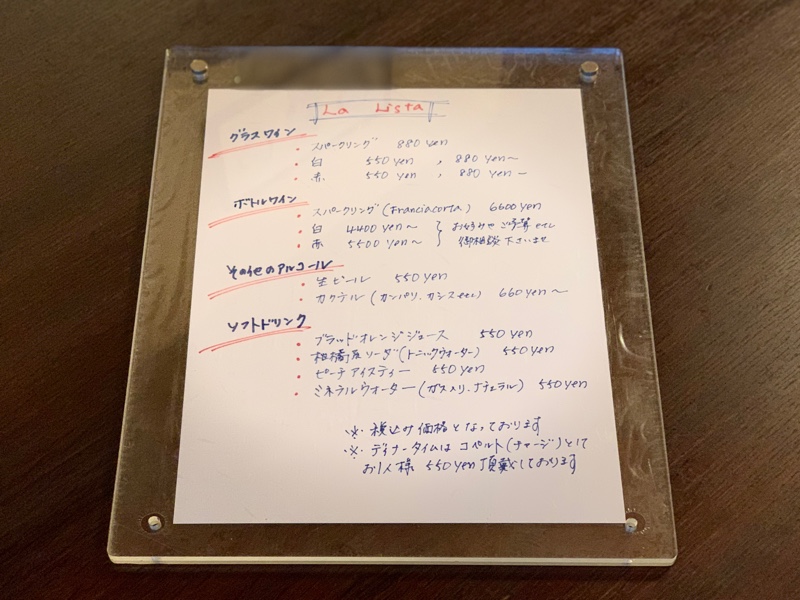 La Lista
グラスワイン
スパークリング 880 yen
白 550 yen , 880 yen〜
赤 550 yen , 880 yen〜
ボトルワイン
スパークリング (Franciacorta) 6600 yen
白 4400 yen〜 お好みやご予算 etc
赤 5500 yen〜 御相談下さいませ
その他のアルコール
生ビール 550 yen
カクテル (カンパリ、カシス etc) 660 yen〜
ソフトドリンク
ブラッドオレンジジュース 550 yen
ソーダ (トニックウォーター) 550 yen
ピーチアイスティー 550 yen
ミネラルウォーター (ガス入り、ナチュラル) 550 yen
※ 税込み価格となっております
※ ディナータイムは コペルト (チャージ) として
お1人様 550 yen 頂戴しております